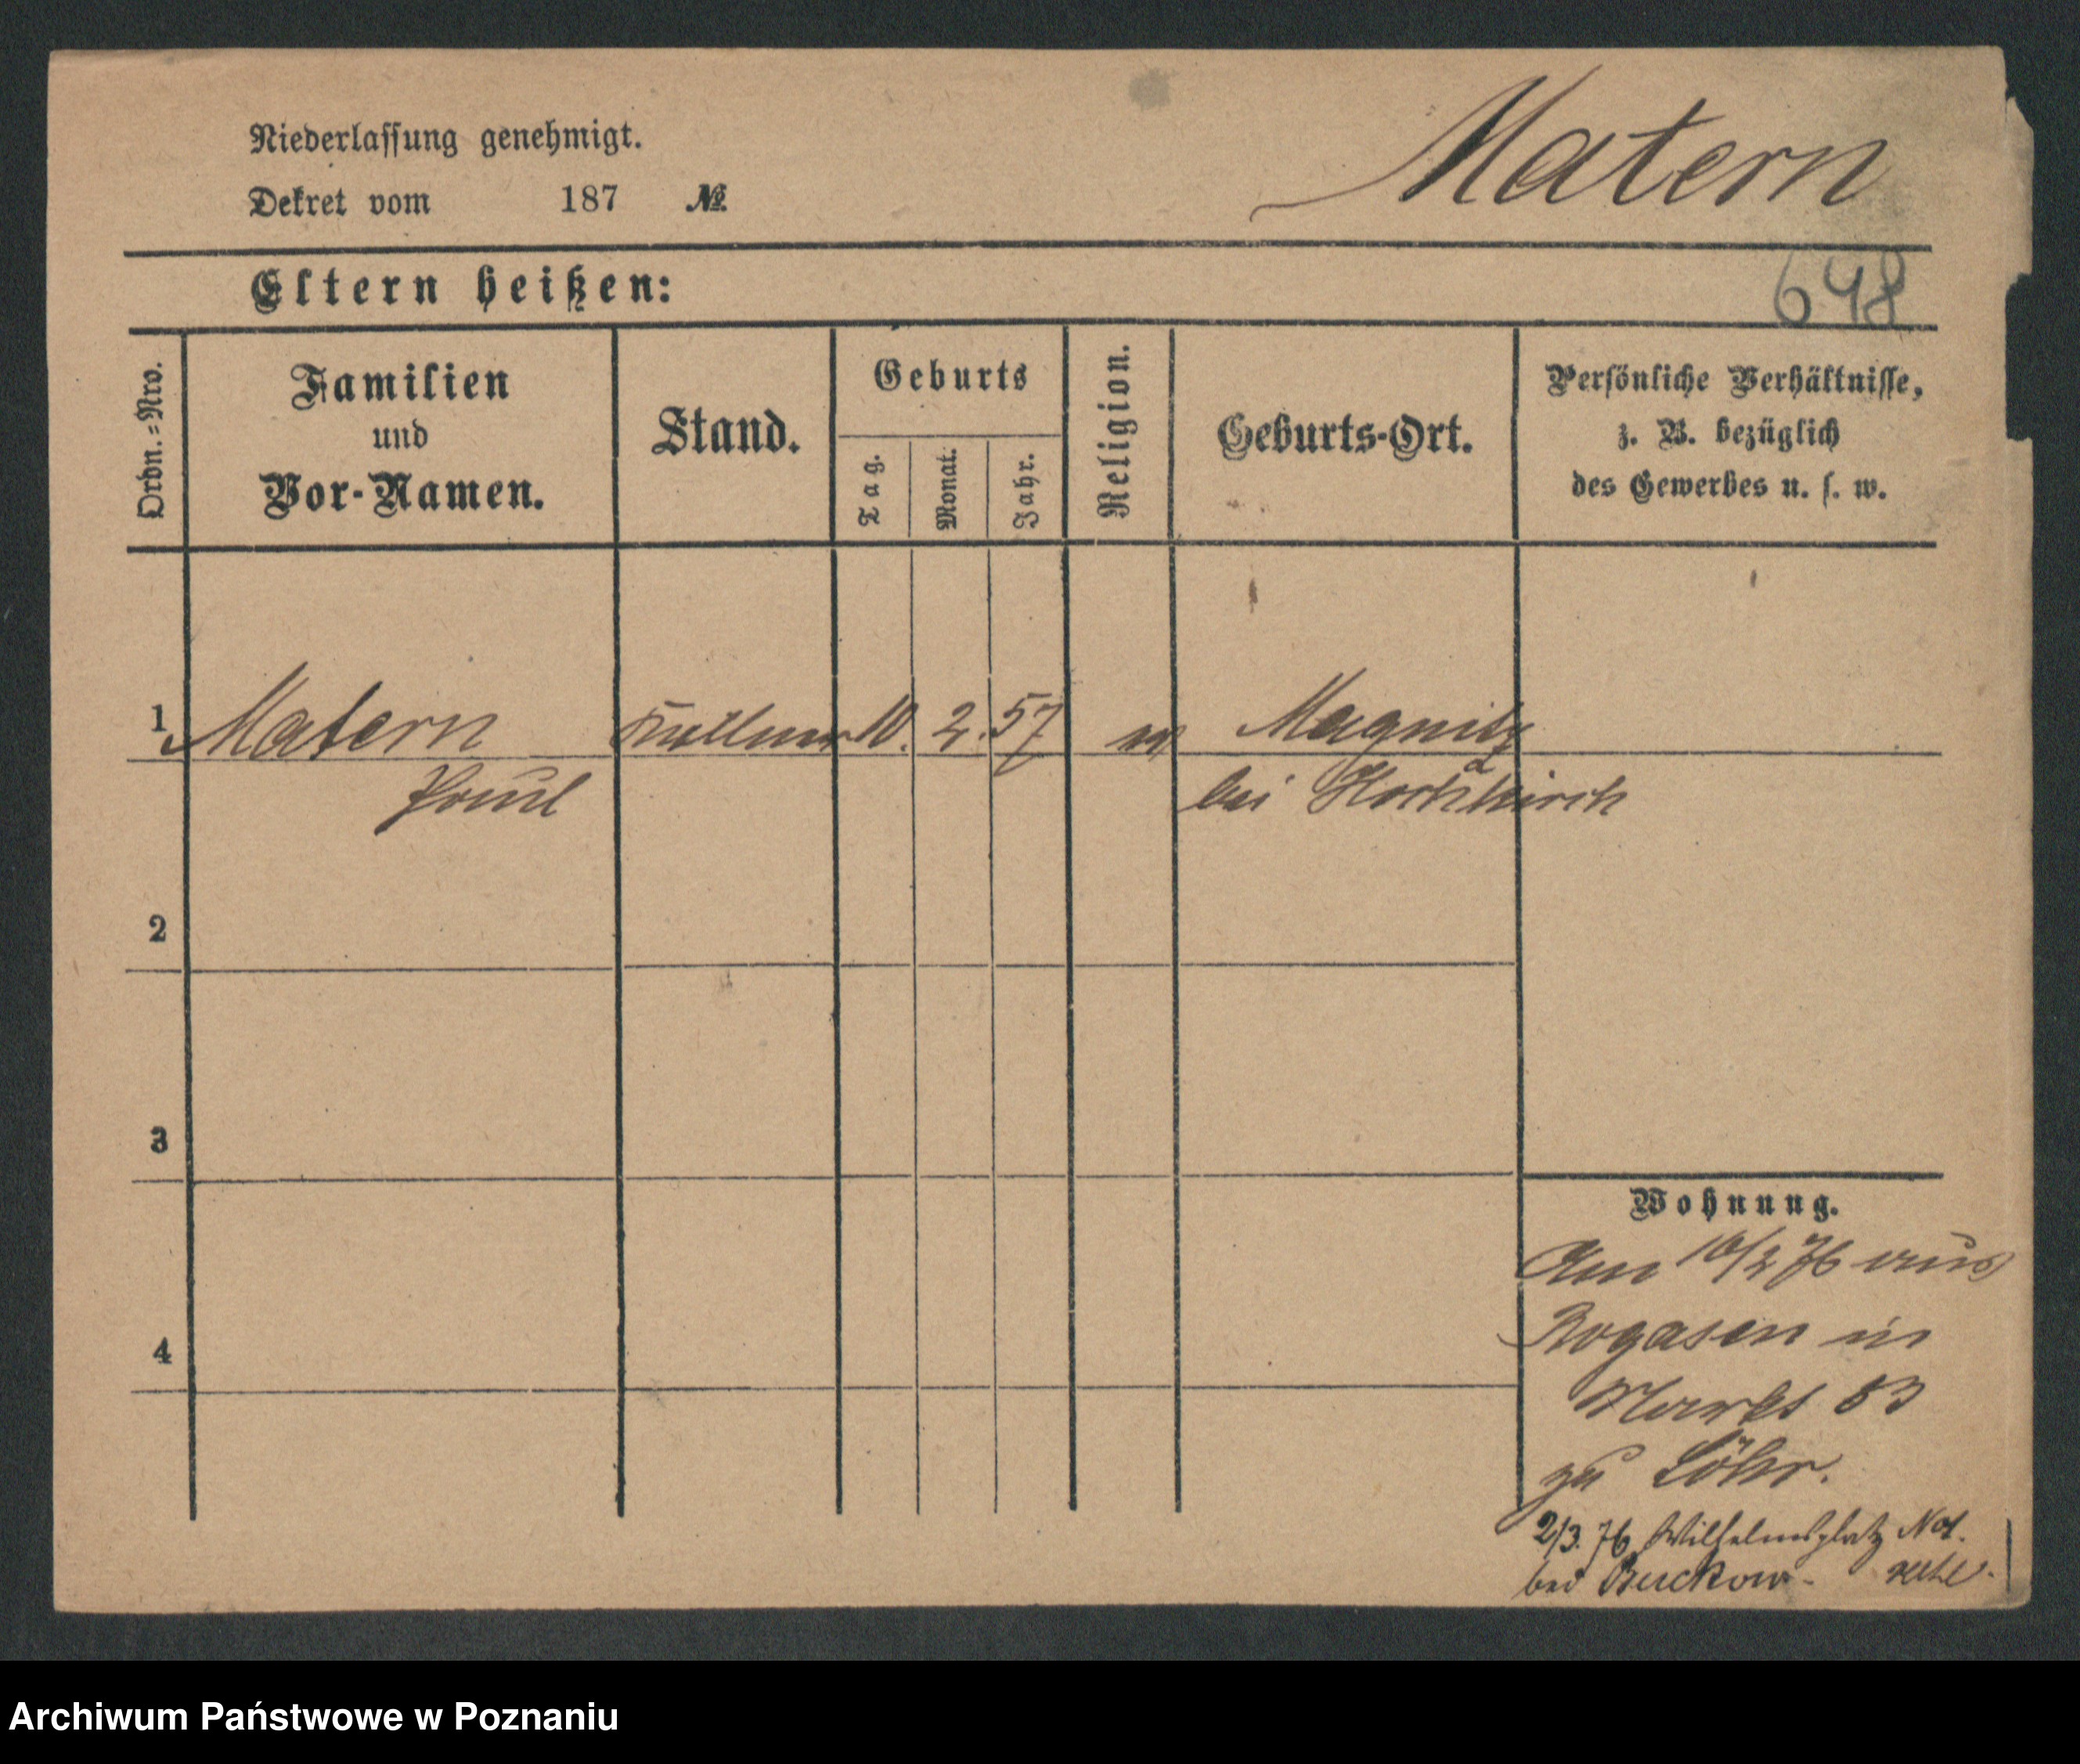 Niederlassung genehmigt.
Dekret vom 187 №
Matern
Eltern heißen:
648
Ordn.=Nro.
Familien
und
Vor-Namen.
Stand.
Geburts
Tag.
Monat.
Jahr.
Religion.
Geburts-Ort.
Persönliche Verhältnisse,
z. B. bezüglich
des Gewerbes u. s. w.
1 Matern Kellner 10. 2. 57 Magnitz
Paul bei Hochkirch
2
3
4
Wohnung.
Am 10/2 76 aus
Rogasen in
Markt 53
zu Löhr.
2/3. 76 Wilhelmsplatz No
bei Buckow
Archiwum Państwowe w Poznaniu